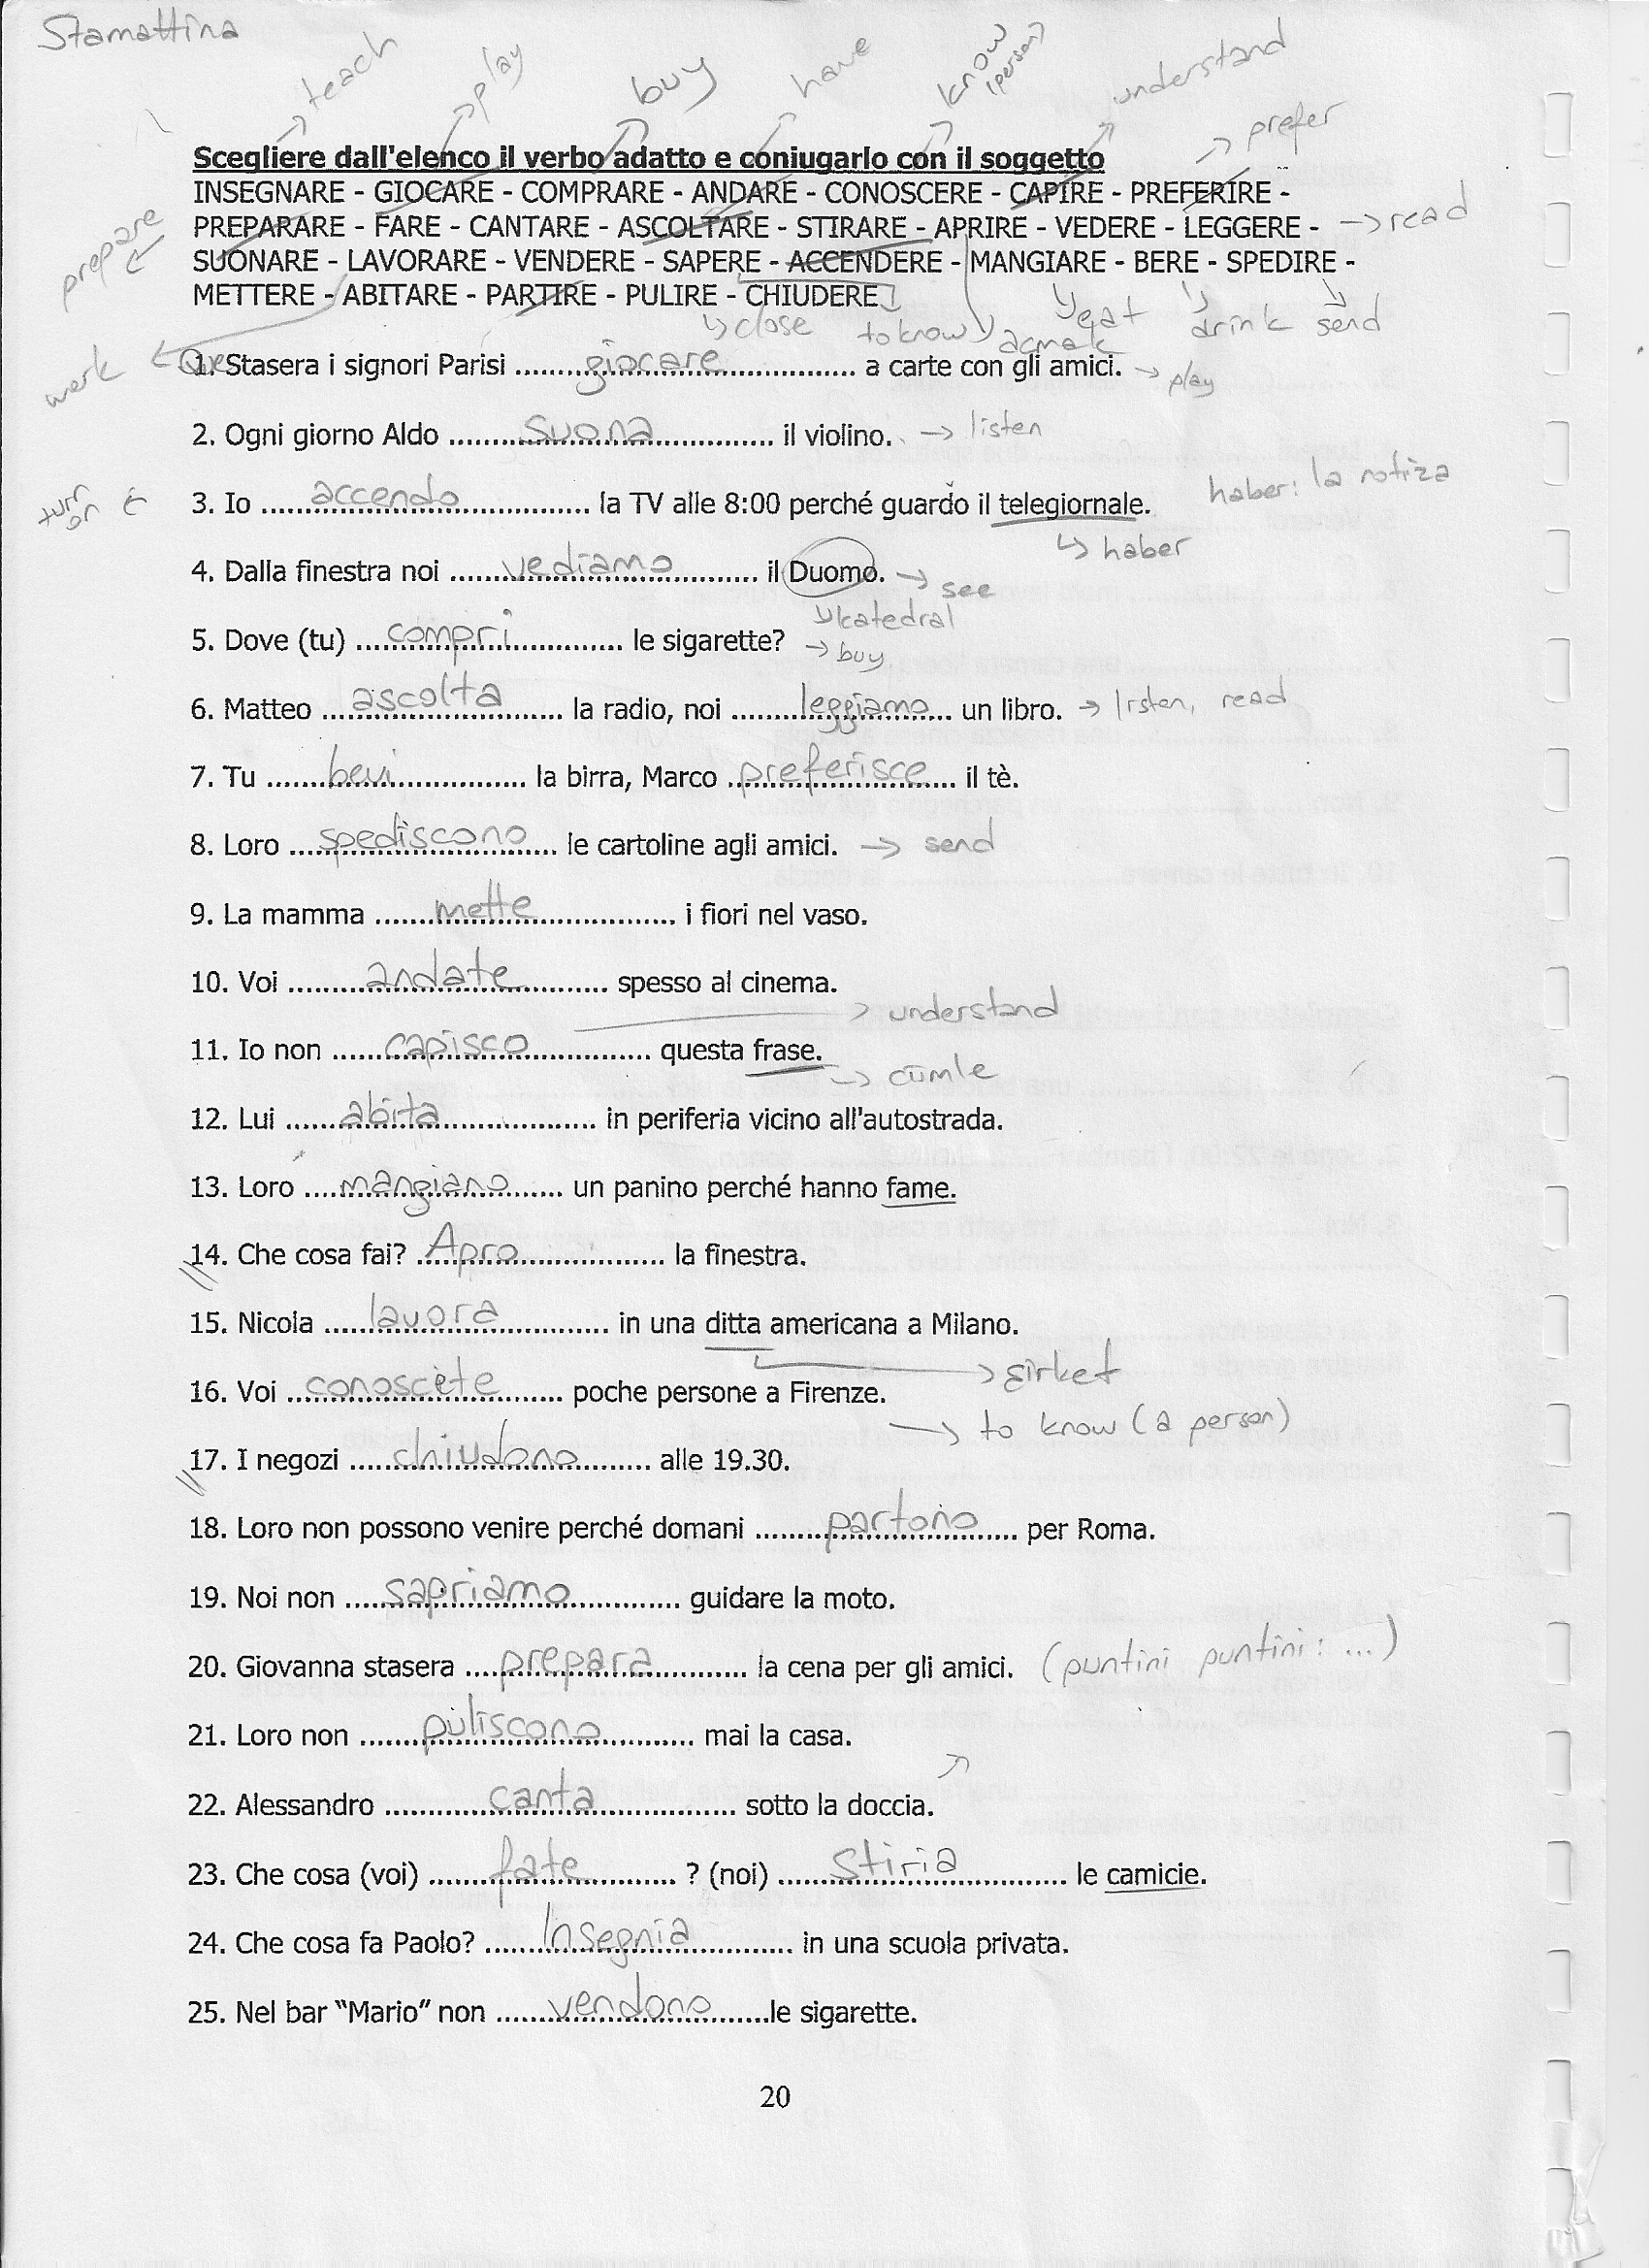 Stamattina
teach play buy have know (person) understand
prefer
Scegliere dall'elenco il verbo adatto e coniugarlo con il soggetto
INSEGNARE - GIOCARE - COMPRARE - ANDARE - CONOSCERE - CAPIRE - PREFERIRE -
PREPARARE - FARE - CANTARE - ASCOLTARE - STIRARE - APRIRE - VEDERE - LEGGERE - → read
prepare
SUONARE - LAVORARE - VENDERE - SAPERE - ACCENDERE - MANGIARE - BERE - SPEDIRE -
METTERE - ABITARE - PARTIRE - PULIRE - CHIUDERE
close to know açmak eat drink send
work
1. Stasera i signori Parisi ........giocare........ a carte con gli amici. → play
2. Ogni giorno Aldo ........suona........ il violino. → listen
turn on
3. Io ........accendo........ la TV alle 8:00 perché guardo il telegiornale. haber: la notiza
→ haber
4. Dalla finestra noi ........vediamo........ il Duomo. → see
katedral
5. Dove (tu) ........compri........ le sigarette? → buy
6. Matteo ........ascolta........ la radio, noi ........leggiamo........ un libro. → listen, read
7. Tu ........bevi........ la birra, Marco ........preferisce........ il tè.
8. Loro ........spediscono........ le cartoline agli amici. → send
9. La mamma ........mette........ i fiori nel vaso.
10. Voi ........andate........ spesso al cinema.
→ understand
11. Io non ........capisco........ questa frase.
→ cümle
12. Lui ........abita........ in periferia vicino all'autostrada.
13. Loro ........mangiano........ un panino perché hanno fame.
14. Che cosa fai? ........Apro........ la finestra.
15. Nicola ........lavora........ in una ditta americana a Milano.
→ şirket
16. Voi ........conoscete........ poche persone a Firenze.
→ to know (a person)
17. I negozi ........chiudono........ alle 19.30.
18. Loro non possono venire perché domani ........partono........ per Roma.
19. Noi non ........sapriamo........ guidare la moto.
20. Giovanna stasera ........prepara........ la cena per gli amici. (puntini puntini: ...)
21. Loro non ........puliscono........ mai la casa.
22. Alessandro ........canta........ sotto la doccia.
23. Che cosa (voi) ........fate........ ? (noi) ........stiria........ le camicie.
24. Che cosa fa Paolo? ........Insegnia........ in una scuola privata.
25. Nel bar “Mario” non ........vendono........le sigarette.
20